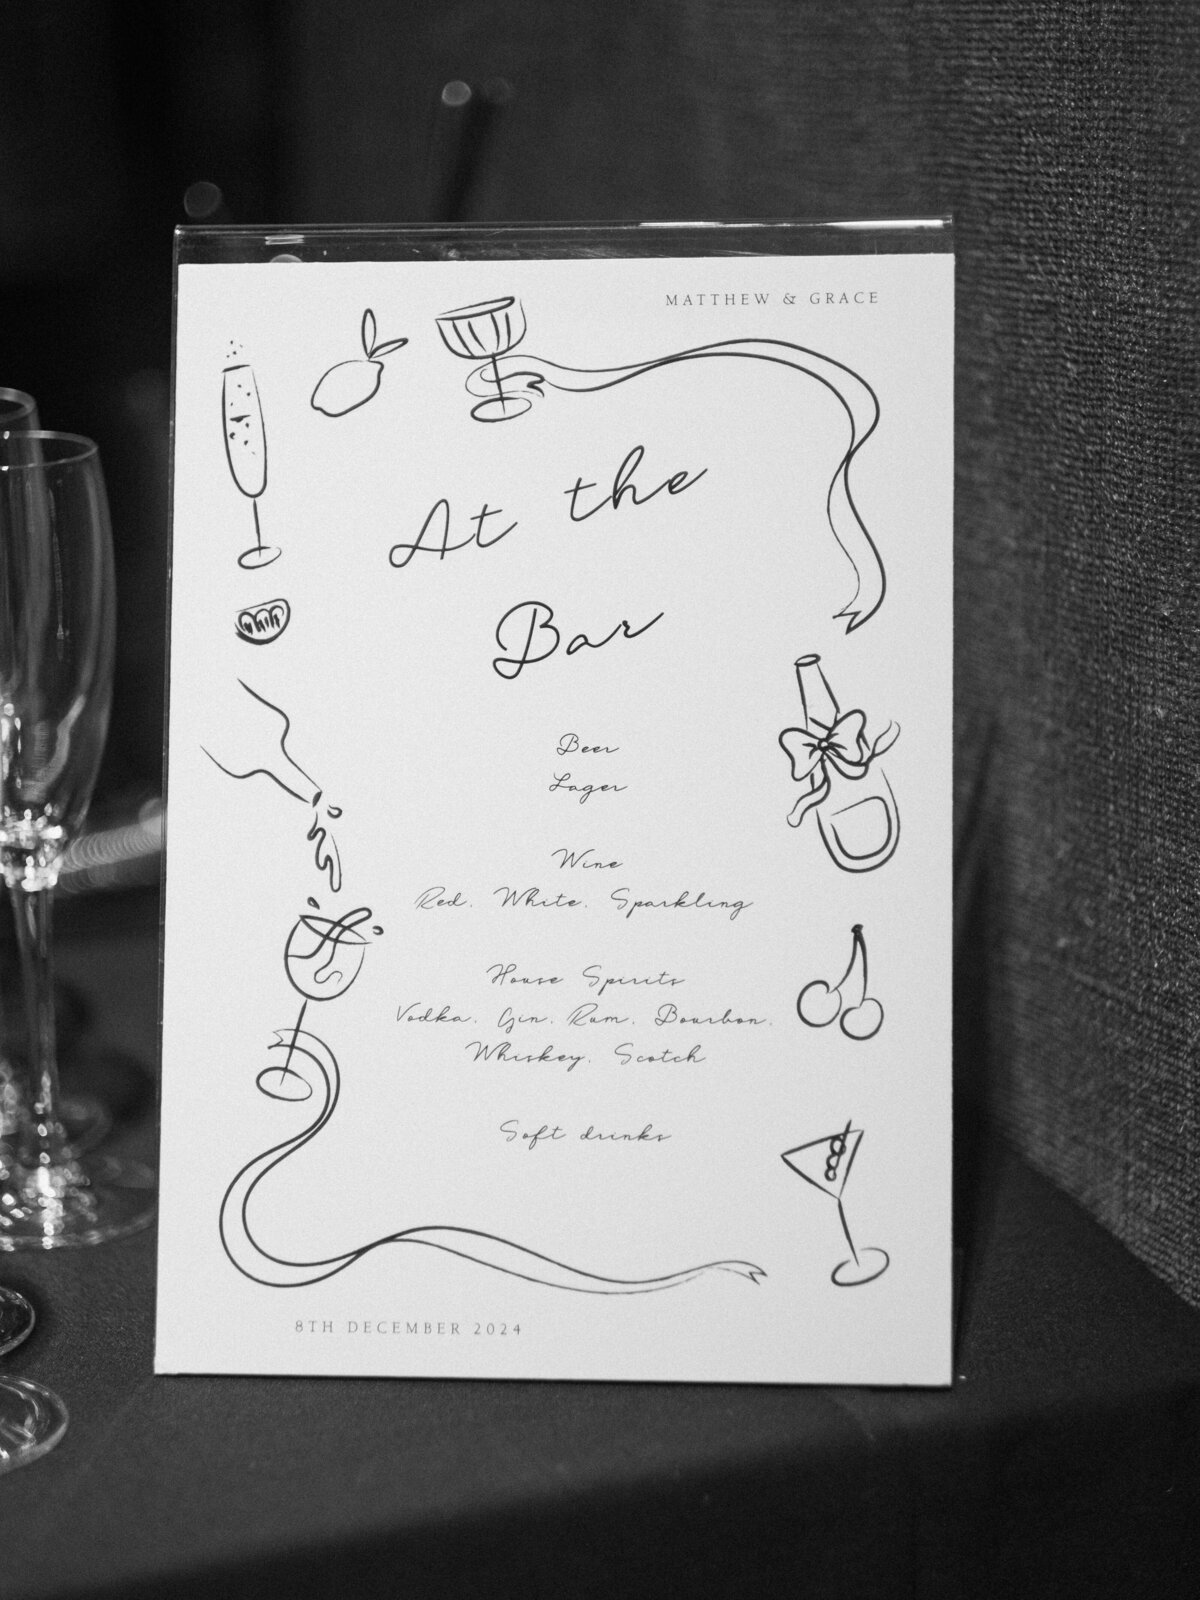 MATTHEW & GRACE
At the
Bar
Beer
Lager
Wine
Red, White, Sparkling
House Spirits
Vodka, Gin, Rum, Bourbon,
Whiskey, Scotch
Soft drinks
8TH DECEMBER 2024